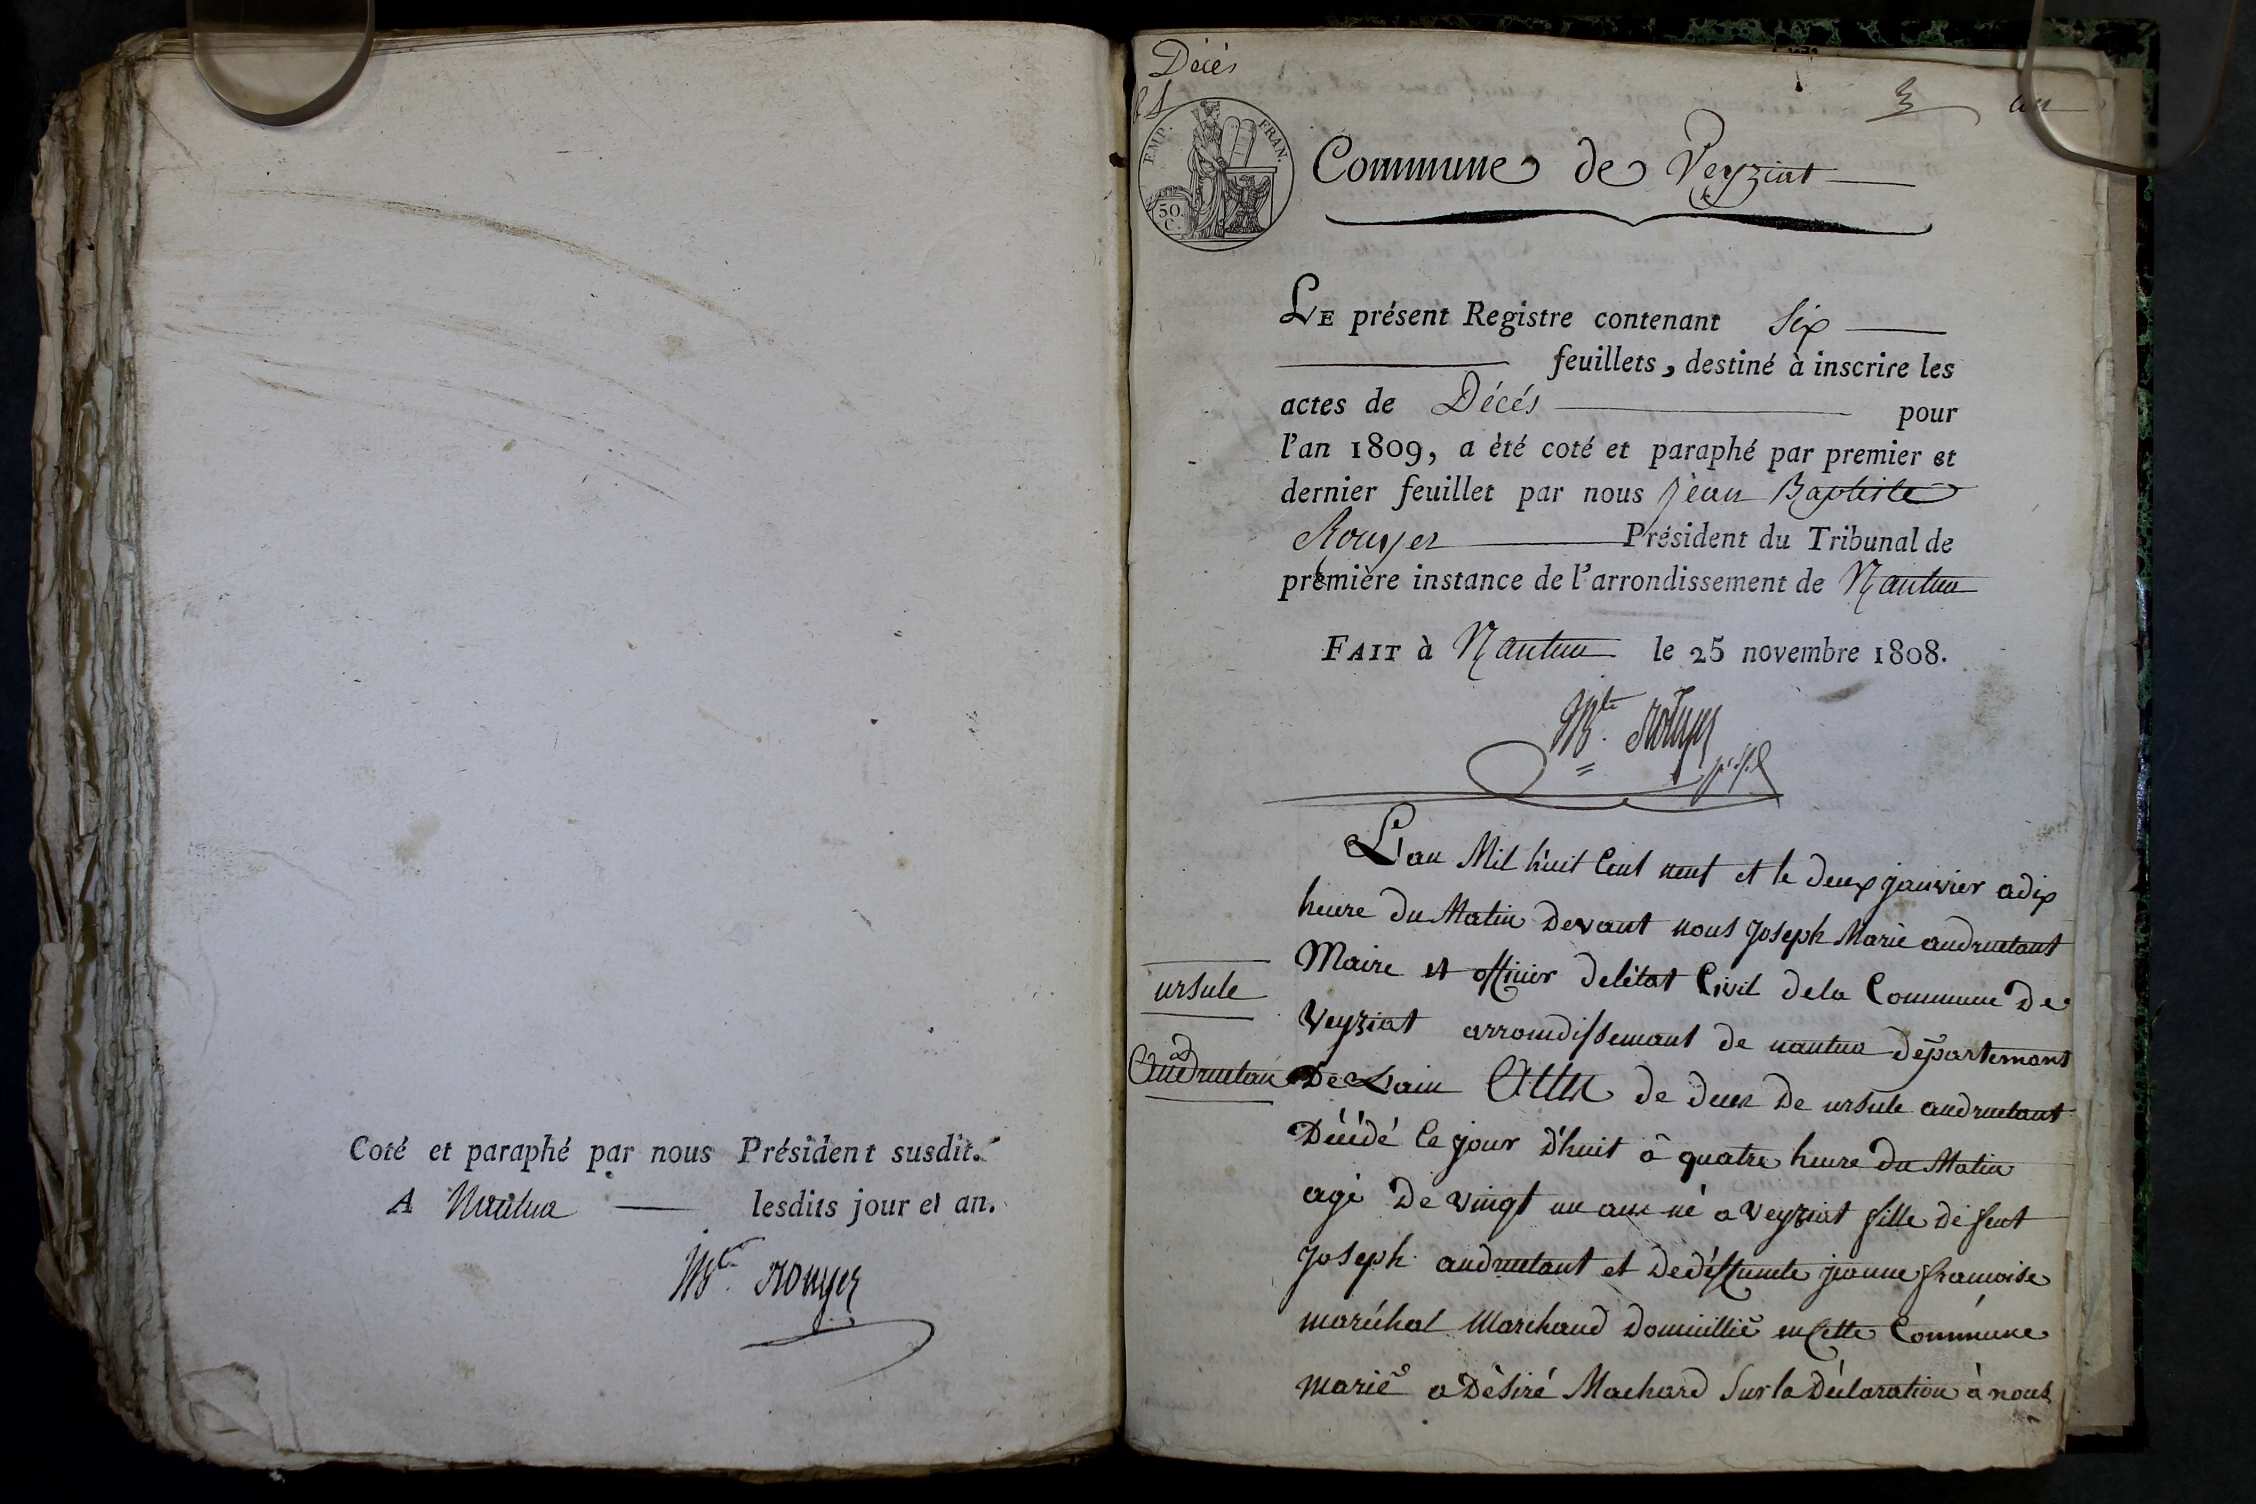 Coté et paraphé par nous Président susdit.
A Nantua lesdits jour et an.
Bte. Rouyer
Décès
EMP. FRAN.
50.
C.
Commune de Veyziat
LE présent Registre contenant Six
feuillets, destiné à inscrire les
actes de Décés pour
l'an 1809, a èté coté et paraphé par premier et
dernier feuillet par nous jean Baptiste
Rouyer Président du Tribunal de
première instance de l'arrondissement de Nantua
FAIT à Nantua le 25 novembre 1808.
Bte. Rouyer
L'an Mil huit Cent neuf et le deux janvier adix
heure du Matin devant nous joseph Marie andruetant
Maire et officier deletat Civil dela Commune De
Veyziat arroundissemant de nantua departemant
De Lain Acte de deces De ursule andruetant
Décédé Ce jour D'huit â quatre heure du Matin
agé De vingt un ans né a veyziat fille de feut
joseph andruetant et Dedéffunte jeanne francoise
maréchal Marchand Domicillié en Cette Commune
marié a Dèsiré Machard Sur la Déclaration à nous
ursule
Andruetan